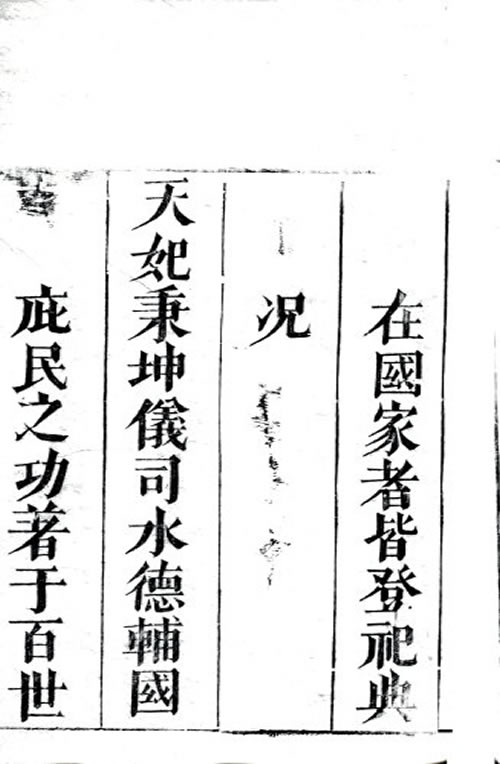 在國家者皆登祀典
况
天妃秉坤儀司水德輔國
庇民之功著于百世